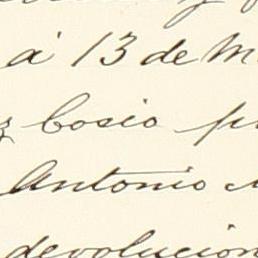 á 13 de M
z Cosio p
Antonio
devolucion